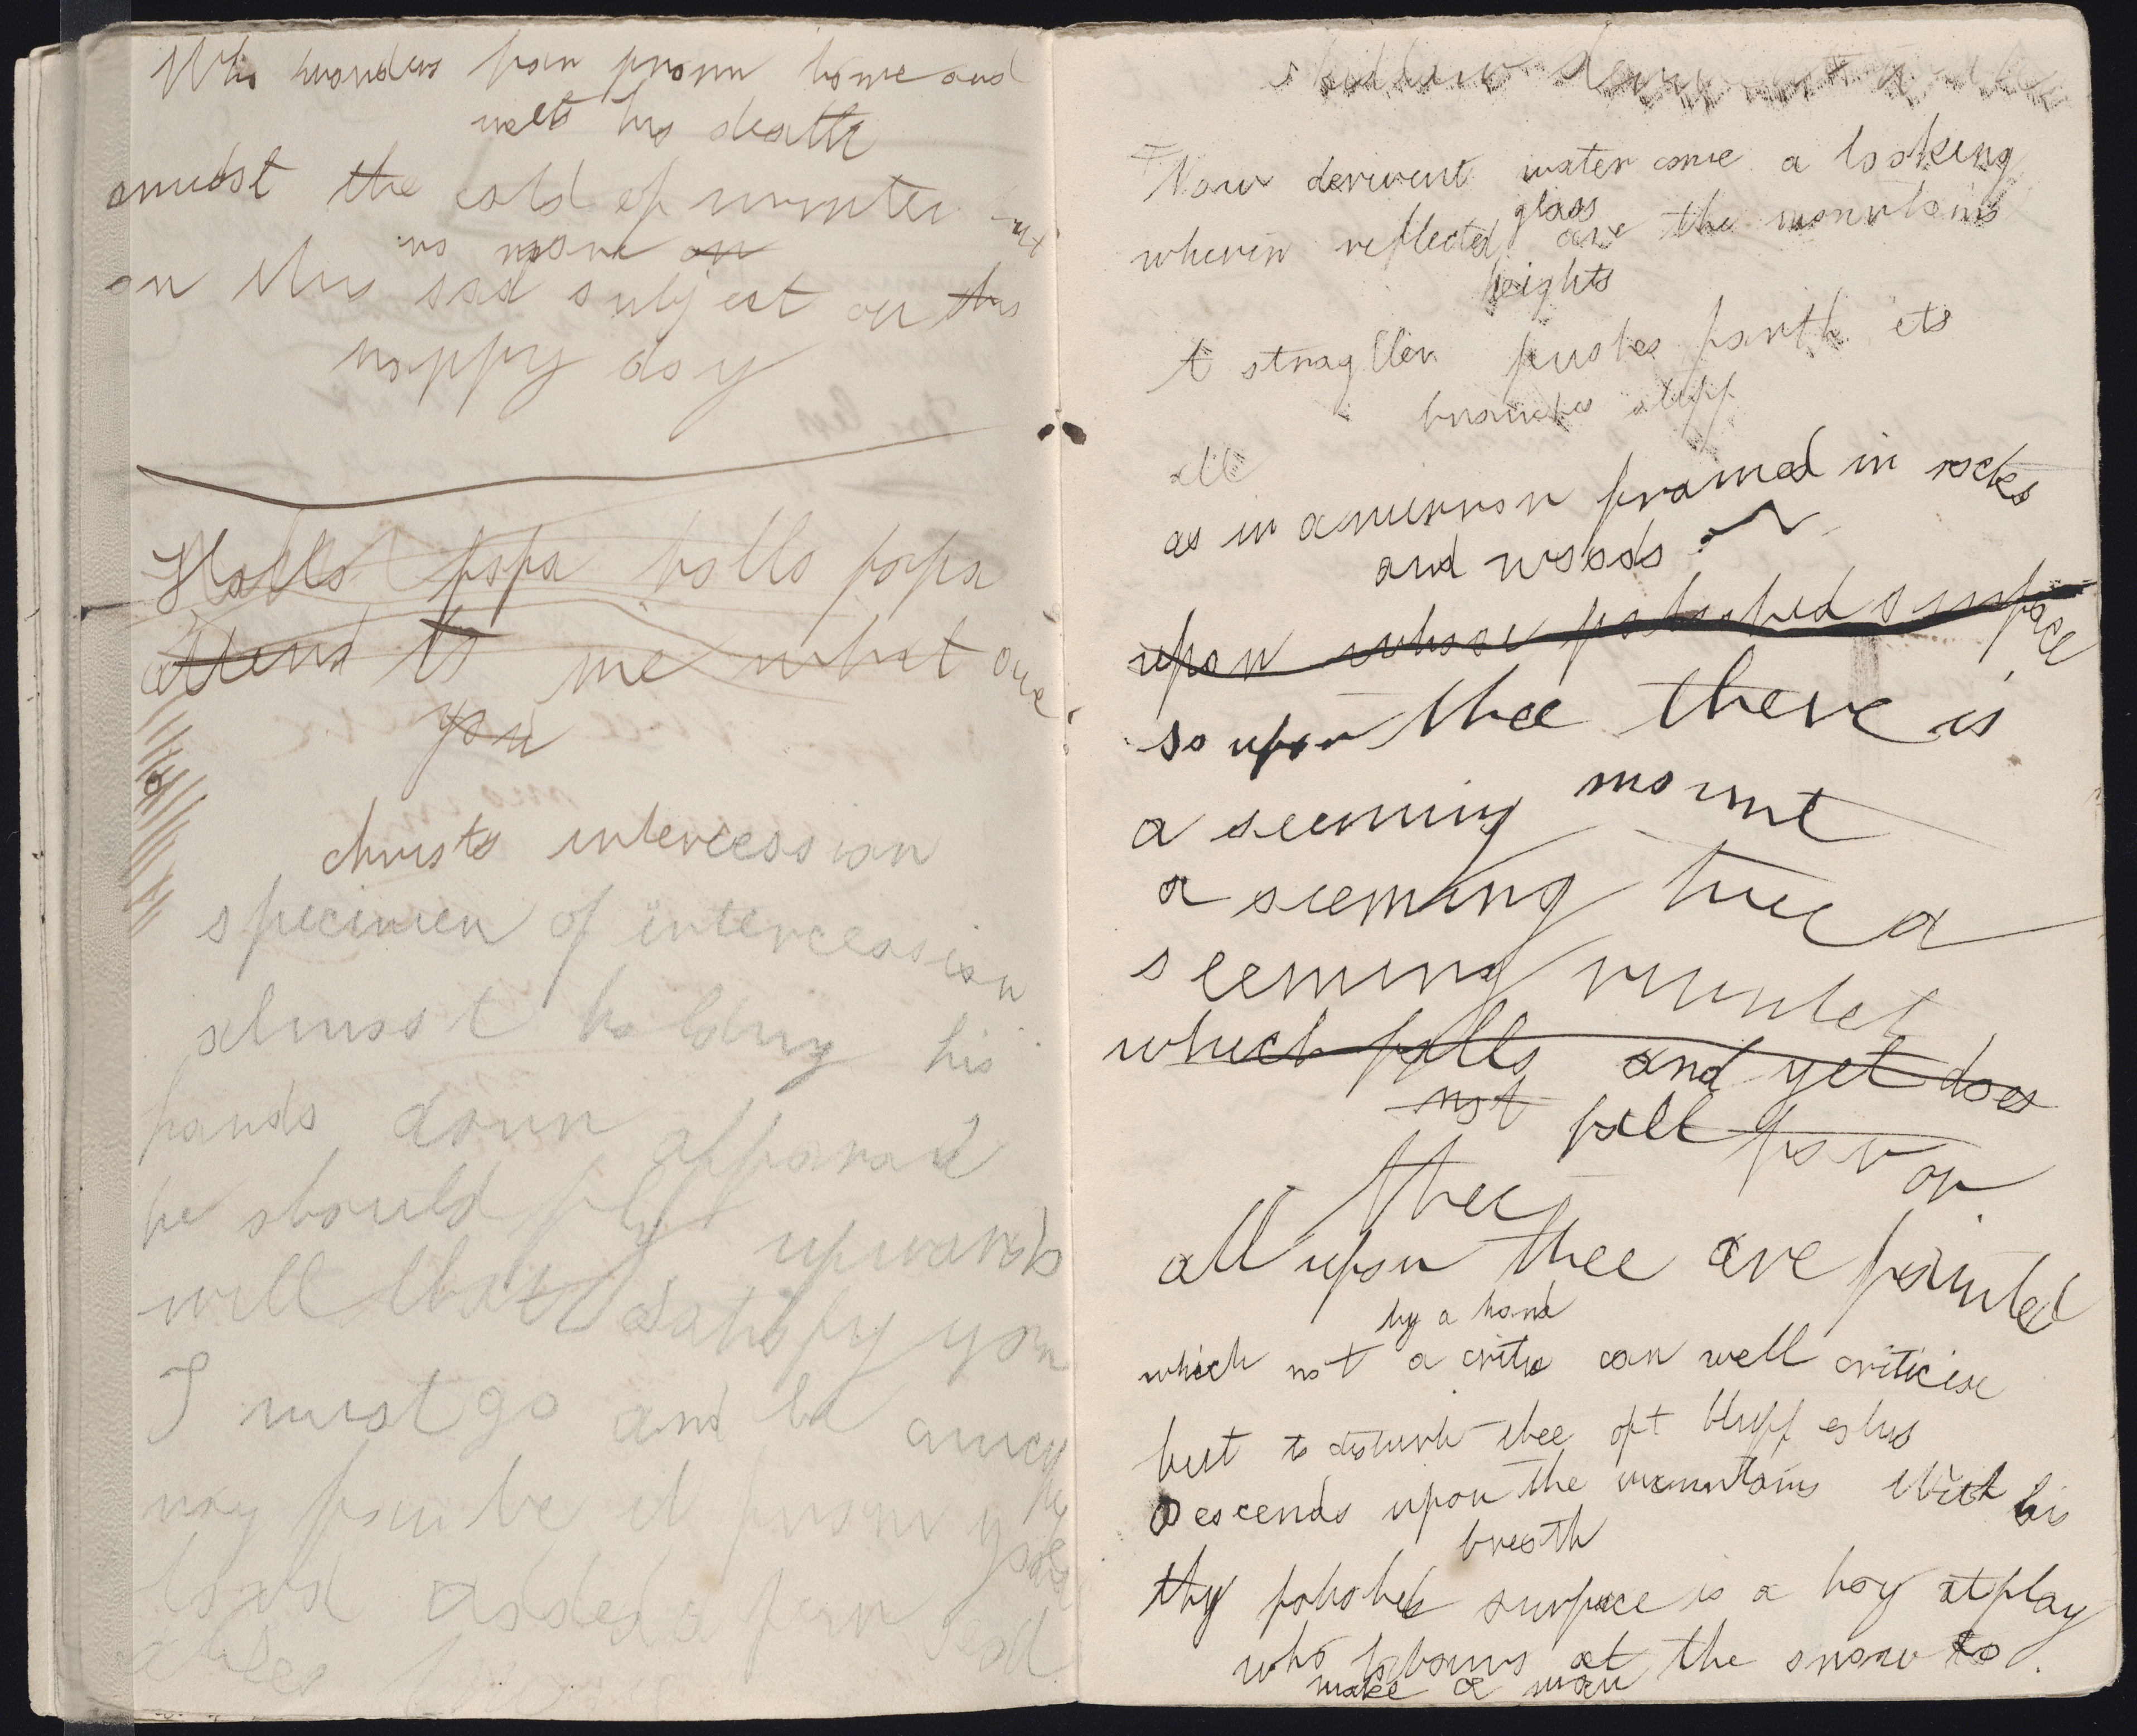 Who wanders far from home and
meets his death
amidst the cold of winter but
no more on
on this sad subject on this
happy day
Hollo papa hollo papa
attend to me what are
you
christs intercession
specimen of intercession
almost holding his
hands down affraid
he should fly upwards
will that satisfy you
I must go and be
may
added a few
Now derwent water come a looking
glass
wherein reflected are the mountains
heights
t straggler pushes forth its
branches stiff
all
as in a mirror framed in rocks
and woods
upon whose polished surface
so upon thee there is
a seeming mount
a seeming tree a
seeming rivulet
which falls and yet does
not fall far on
thee
all upon thee are painted
by a hand
which not a critic can well criticise
but to disturb thee oft bluff eolus
Descends upon the mountains with his
breath
thy polished surface is a boy at play
who labours at the snow to
make a man